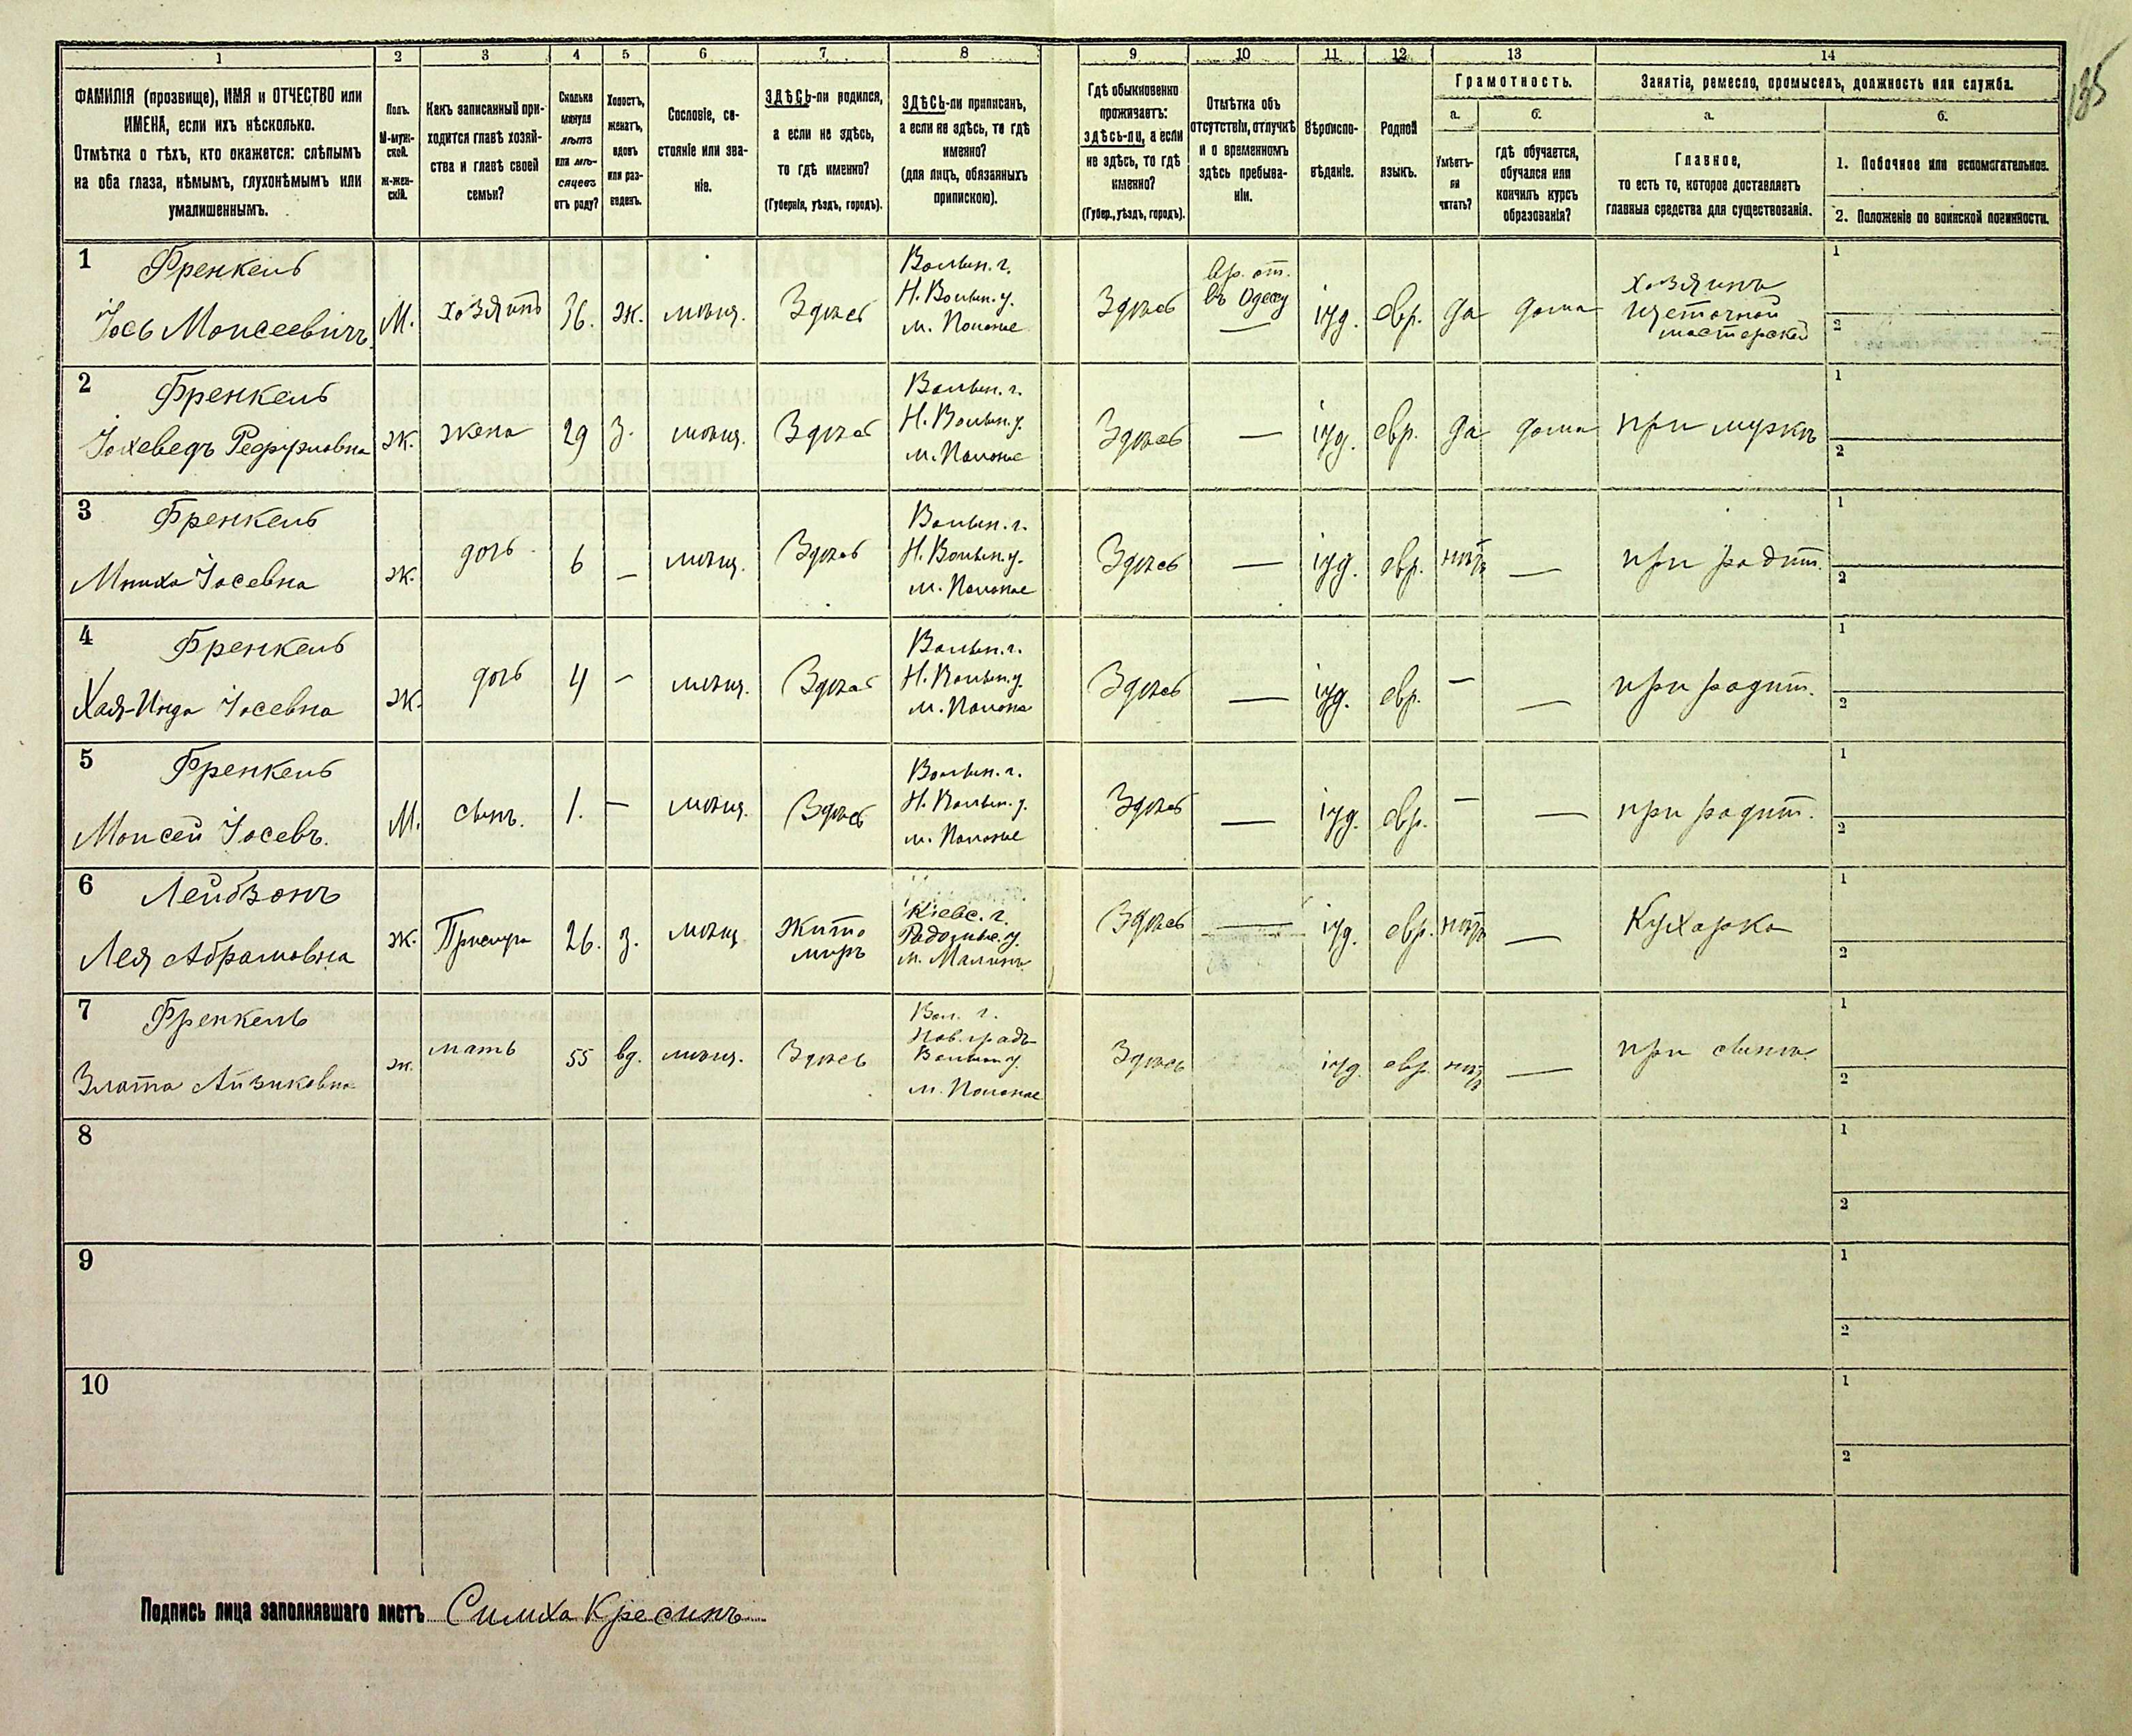 185
1 2 3 4 5 6 7 8 9 10 11 12 13 14
ФАМИЛІЯ (прозвище), ИМЯ и ОТЧЕСТВО или
ИМЕНА, если ихъ нѣсколько.
Отмѣтка о тѣхъ, кто окажется: слѣпымъ
на оба глаза, нѣмымъ, глухонѣмымъ или
умалишеннымъ.
Полъ.
М-муж-
ской.
Ж-жен-
скій.
Какъ записанный при-
ходится главѣ хозяй-
ства и главѣ своей
семьи?
Сколько
минуло
лѣтъ
или мѣ-
сяцевъ
отъ роду?
Холостъ,
женатъ,
вдовъ
или раз-
веденъ.
Сословіе, со-
стояніе или зва-
ніе.
ЗДѢСЬ-ли родился,
а если не здѣсь,
то гдѣ именно?
(Губернія, уѣздъ, городъ).
ЗДѢСЬ-ли приписанъ,
а если не здѣсь, то гдѣ
именно?
(для лицъ, обязанныхъ
припискою).
Гдѣ обыкновенно
проживаетъ:
здѣсь-ли, а если
не здѣсь, то гдѣ
именно?
(Губер., уѣздъ, городъ).
Отмѣтка объ
отсутствіи, отлучкѣ
и о временномъ
здѣсь пребыва-
ніи.
Вѣроиспо-
вѣданіе.
Родной
языкъ.
Грамотность.
а.
Умѣетъ-
ли
читать?
б.
гдѣ обучается,
обучался или
кончилъ курсъ
образованія?
Занятіе, ремесло, промыселъ, должность или служба.
а.
Главное,
то есть то, которое доставляетъ
главныя средства для существованія.
б.
1. Побочное или вспомогательное.
2. Положеніе по воинской повинности.
1 Френкель
Іось Моисеевичъ
М.
хозяинъ
36.
ж.
мѣщ.
Здѣсь
Волын. г.
Н. Волын. у.
м. Полоное
Здѣсь
Вр. от.
въ Одессу
іуд.
евр.
да
дома
хозяинъ
щеточной
мастерской
1
2
2 Френкель
Іохеведъ
ж.
жена
29
з.
мѣщ.
Здѣсь
Волын. г.
Н. Волын. у.
м. Полоное
Здѣсь
—
іуд.
евр.
да
дома
при мужѣ
1
2
3 Френкель
Іосевна
ж.
дочь
6
—
мѣщ.
Здѣсь
Волын. г.
Н. Волын. у.
м. Полоное
Здѣсь
—
іуд.
евр.
нѣтъ
—
при родит.
1
2
4 Френкель
Хая- Іосевна
ж.
дочь
4
—
мѣщ.
Здѣсь
Волын. г.
Н. Волын. у.
м. Полоное
Здѣсь
—
іуд.
евр.
—
—
при родит.
1
2
5 Френкель
Моисей Іосевъ.
М.
сынъ.
1.
—
мѣщ.
Здѣсь
Волын. г.
Н. Волын. у.
м. Полоное
Здѣсь
—
іуд.
евр.
—
—
при родит.
1
2
6 Лейбзонъ
Лея Абрамовна
ж.
Прислуга
26.
з.
мѣщ
Жито
миръ
Кіевс. г.
у.
м. Малинъ
Здѣсь
—
іуд.
евр.
нѣтъ
—
Кухарка
1
2
7 Френкель
Злата Айзиковна
ж.
мать
55
вд.
мѣщ.
Здѣсь
Вол. г.
Нов. градъ-
Волын у.
м. Полоное
Здѣсь
іуд.
евр.
нѣтъ
—
при сынѣ
1
2
8
1
2
9
1
2
10
1
2
Подпись лица заполнявшаго листъ Симха Кресинъ